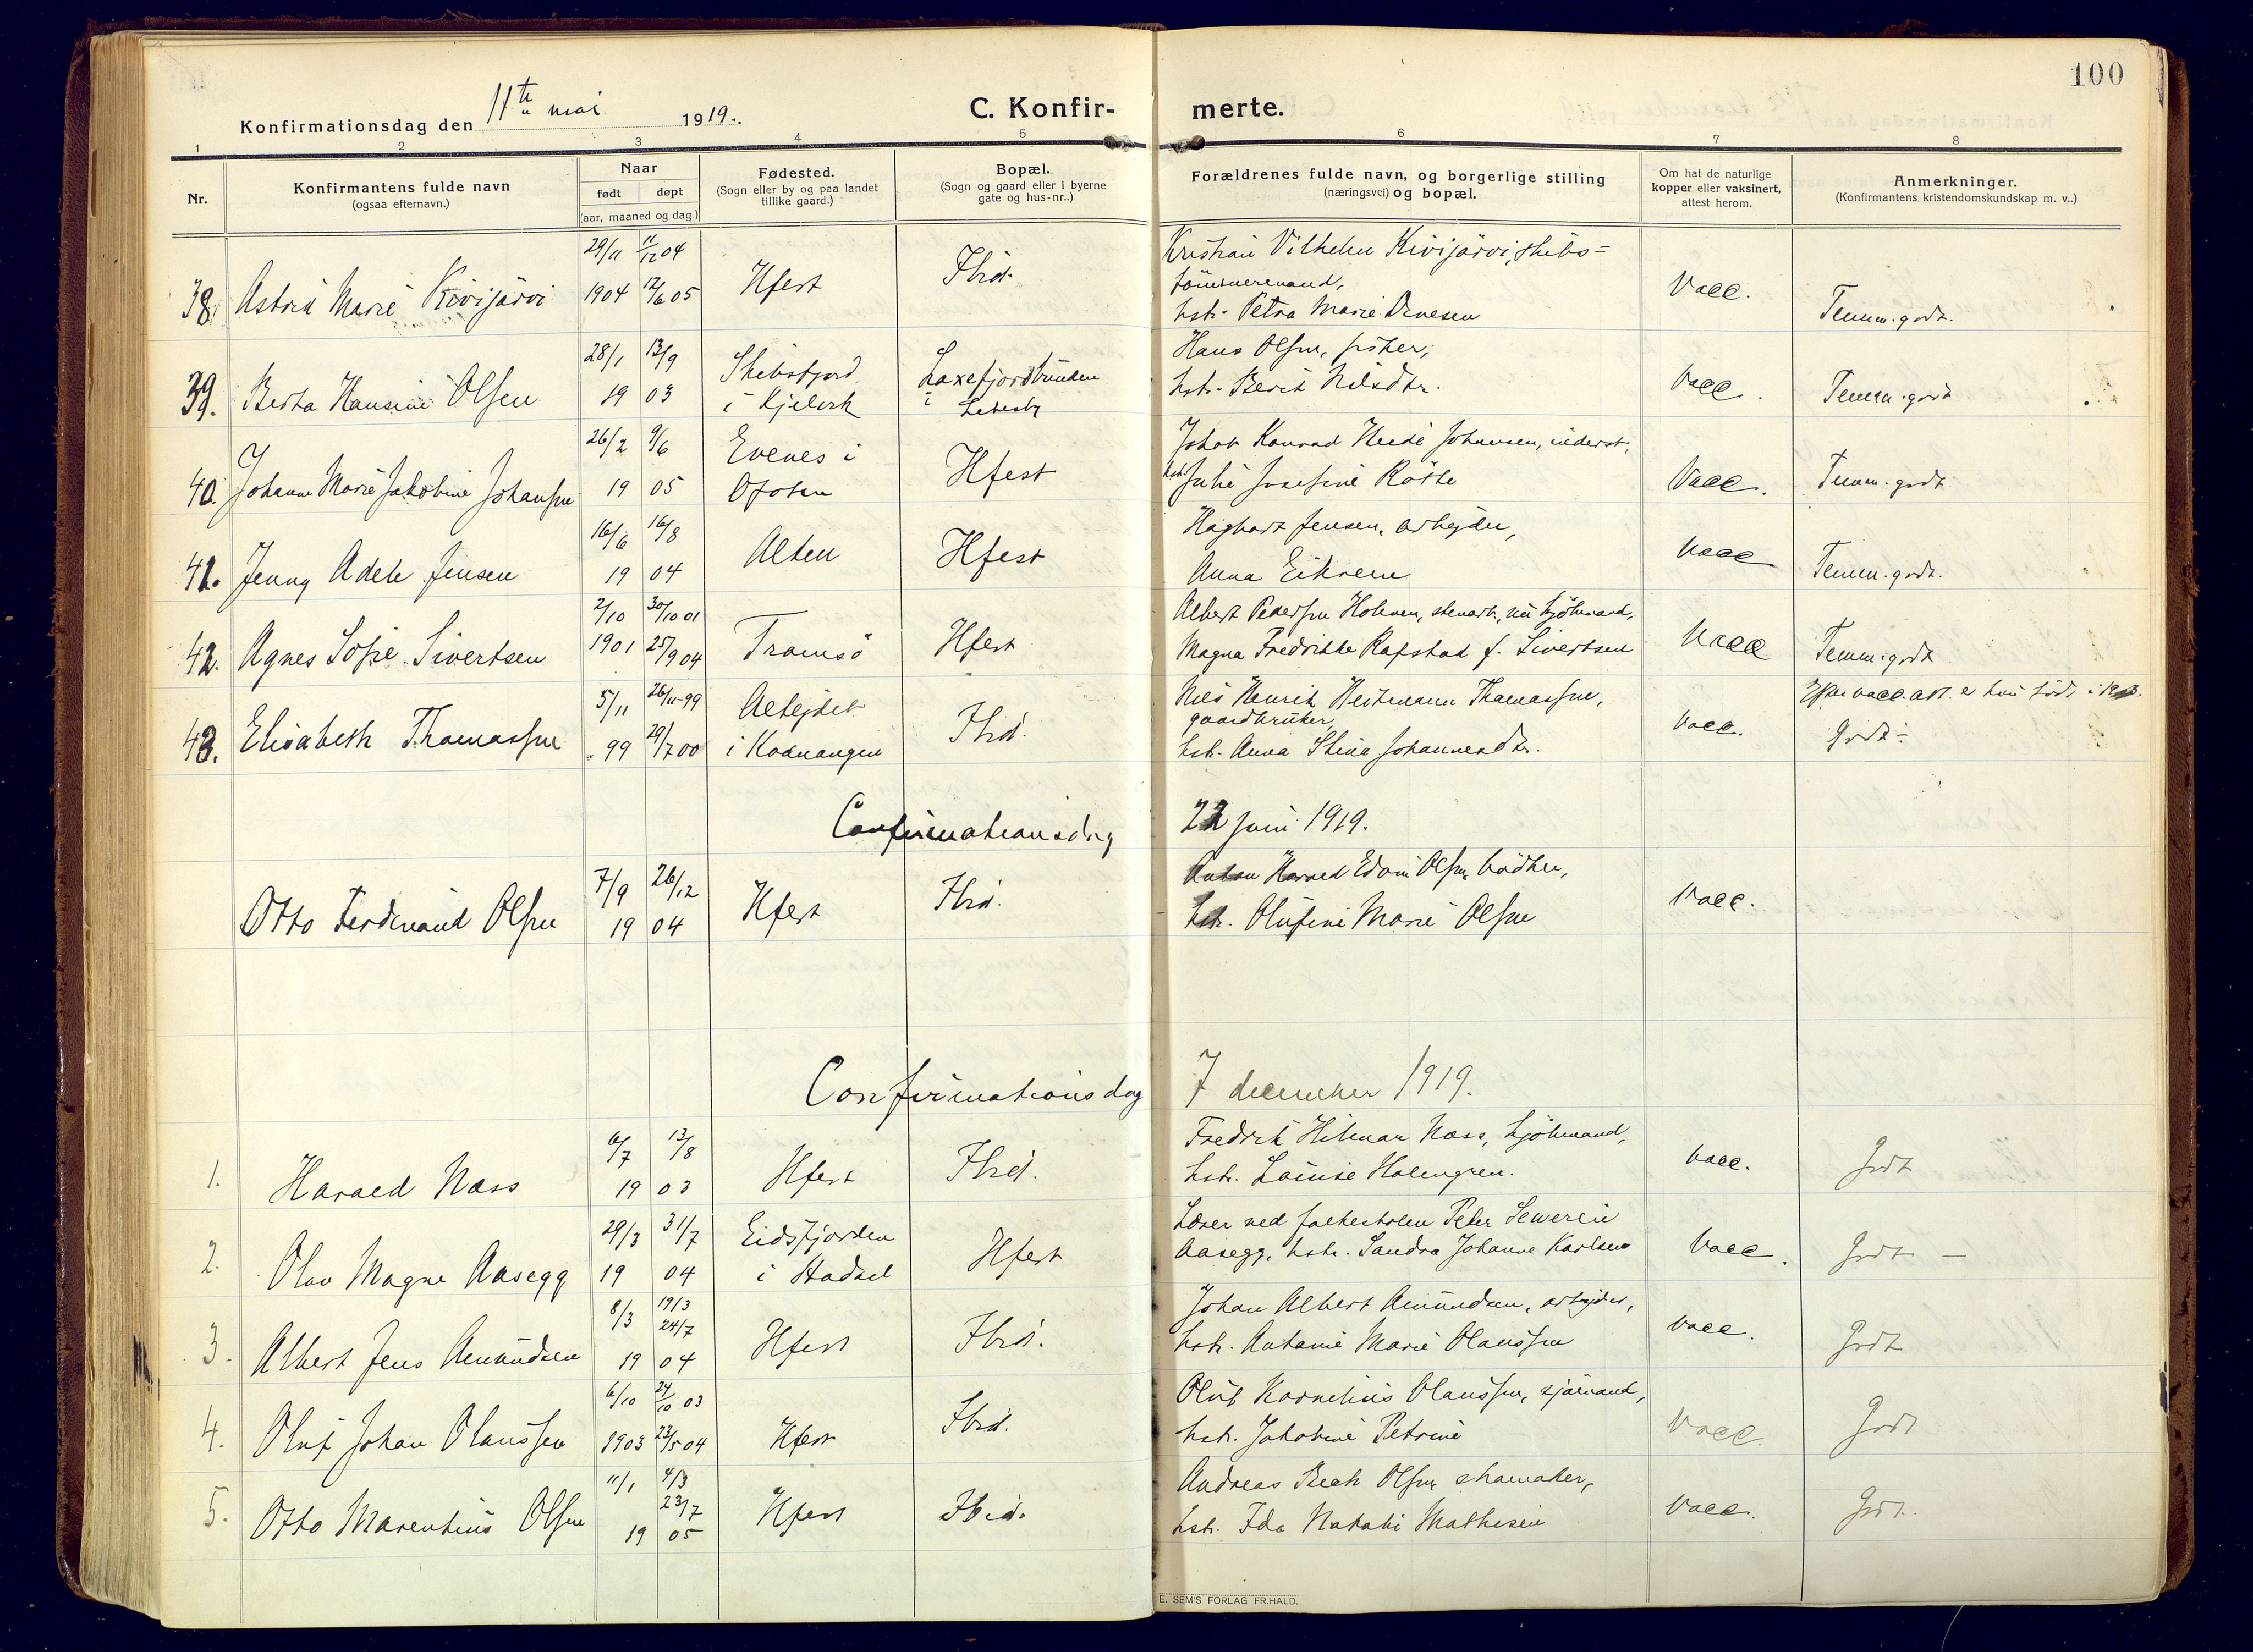 100
Konfirmationsdag den 11te mai 1919.
C. Konfirmerte.
1 2 3 4 5 6 7 8
Nr.
Konfirmantens fulde navn
(ogsaa efternavn.)
Naar
født døpt
(aar, maaned og dag)
Fødested.
(Sogn eller by og paa landet
tillike gaard.)
Bopæl.
(Sogn og gaard eller i byerne
gate og hus-nr..)
Forældrenes fulde navn, og borgerlige stilling
(næringsvei) og bopæl.
Om hat de naturlige
kopper eller vaksinert,
attest herom.
Anmerkninger.
(Konfirmantens kristendomskundskap m. v..)
29/11 11/12 04
38. Astrid Marie Kivijärvi 1904 12/6 05 Hfest Ibid.
Kristian Vilhelm Kivijärvi, skibs=
tömmermand,
hstr. Petra Marie
Vacc. Temm. godt.
28/1 13/9
39. Berta Hansine Olsen 19 03
Skibsfjord
i Kjelvik
Laxefjordbunden
i Lebesby
Hans Olsen, fisker,
hstr. Berit Nilsdtr.
Vacc. Temm. godt
26/2 9/6
40. Johanne Marie Jakobine Johansen 19 05
Evenes i
Ofoten
Hfest
Johan Konrad Johansen, inderst,
hstr. Julie Josefine
Vacc. Temm. godt
16/6 16/8
41. Jenny Adele Jensen 19 04 Alten Hfest
Hagbart Jensen, arbejder,
Anna
Vacc Temm. godt.
2/10 30/10 01
42. Agnes Sofie Sivertsen 1901 25/9 04 Tromsö Hfest
Albert Pedersen Holmen, stenarb., nu sjömand,
Magna Fredrikke Rapstad f. Sivertsen
Vacc Temm. godt
5/11 26/11-99
43. Elisabeth Thomassen 99 29/7 00
i Kvænangen
Ibid.
Nils Henrik Heitmann Thomassen,
gaardbruker,
hstr. Anna Stina Johannesdtr.
Vacc.
Efter vacc. att. er hun födt i
Godt-
Confirmationsdag 22 juni 1919.
7/9 26/12
Otto Ferdinand Olsen 19 04 Hfest Ibid.
Anton Harald Edvin Olsen, bödker,
hstr. Olufine Marie Olsen
Vacc.
Confirmationsdag 7 december 1919.
6/7 13/8
1. Harald Næss 19 03 Hfest Ibid.
Fredrik Hilmar Næss, sjömand,
hstr. Louise Holmgren.
Vacc. Godt
29/3 31/7
2. Olav Magne Aasegg 19 04
Eidsfjorden
i Hadsel
Hfest
Lærer ved folkeskolen Peter Severin
Aasegg, hstr. Sandra Johanne Karlsen
Vacc. Godt -
8/3 19/3
24/7
3. Albert Jens Amundsen 19 04 Hfest Ibid.
Johan Albert Amundsen, arbejder,
hstr. Antonie Marie Olaussen
Vacc. Godt
6/10 24/10 03
4. Oluf Johan Olaussen 1903 23/5 04 Hfest Ibid.
Oluf Kornelius Olaussen, sjömand,
hstr. Jakobine Petrine
Vacc. Godt
11/1 4/3
23/7
5. Otto Marentius Olsen 19 05 Hfest Ibid.
Andreas Beck Olsen, skomaker,
hstr. Ida Natalie Mathisen
Vacc. Godt.
E. SEM'S FORLAG FR.HALD.